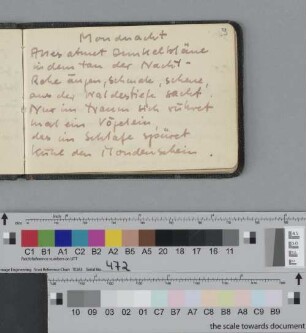 Mondnacht
Alles atmet Dunkelbläue
in dem tau der Nacht –
Rehe äugen, scheu,
aus der Waldestiefe sacht.
Nur im Traum sich rühret
mal ein Vöglein,
das im Schlafe spüret
Kühl den Mondenschein.
C1 B1 A1 C2 B2 A2 B5 A5 20 18 17 16 11
472
10 09 03 02 01 C7 B7 A7 C8 B8 A8 C9 B9
the scale towards document